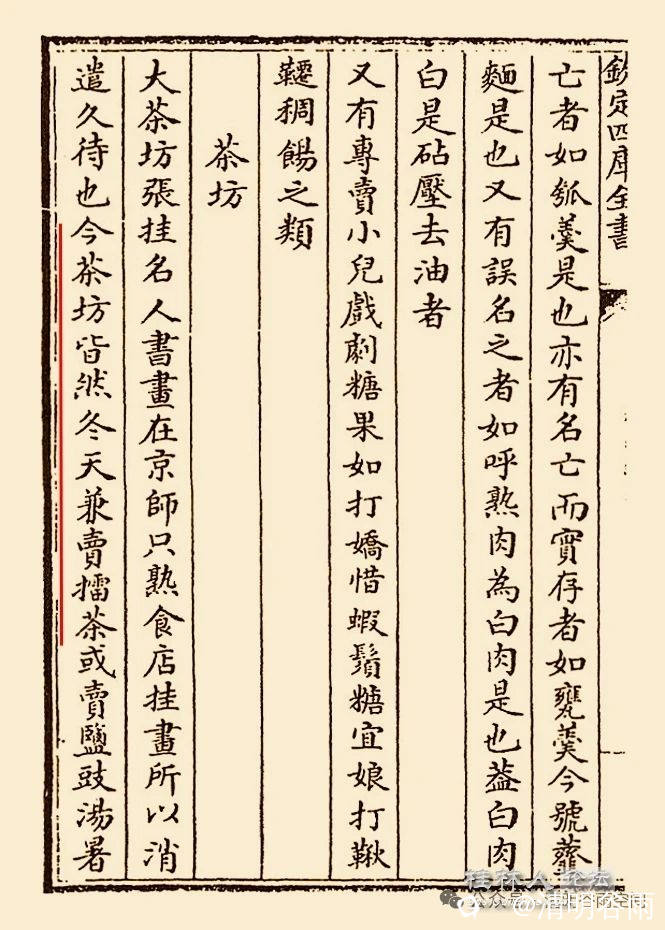 欽定四庫全書
亡者如瓠羮是也亦有名亡而實存者如甕羮今號虀
麵是也又有誤名之者如呼熟肉為白肉是也葢白肉
白是砧壓去油者
又有專賣小兒戲劇糖果如打嬌惜蝦鬚糖宜娘打鞦
韆稠餳之類
茶坊
大茶坊張挂名人書畫在京師只熟食店挂畫所以消
遣久待也今茶坊皆然冬天兼賣擂茶或賣鹽豉湯暑
桂林人论坛
@清明谷雨